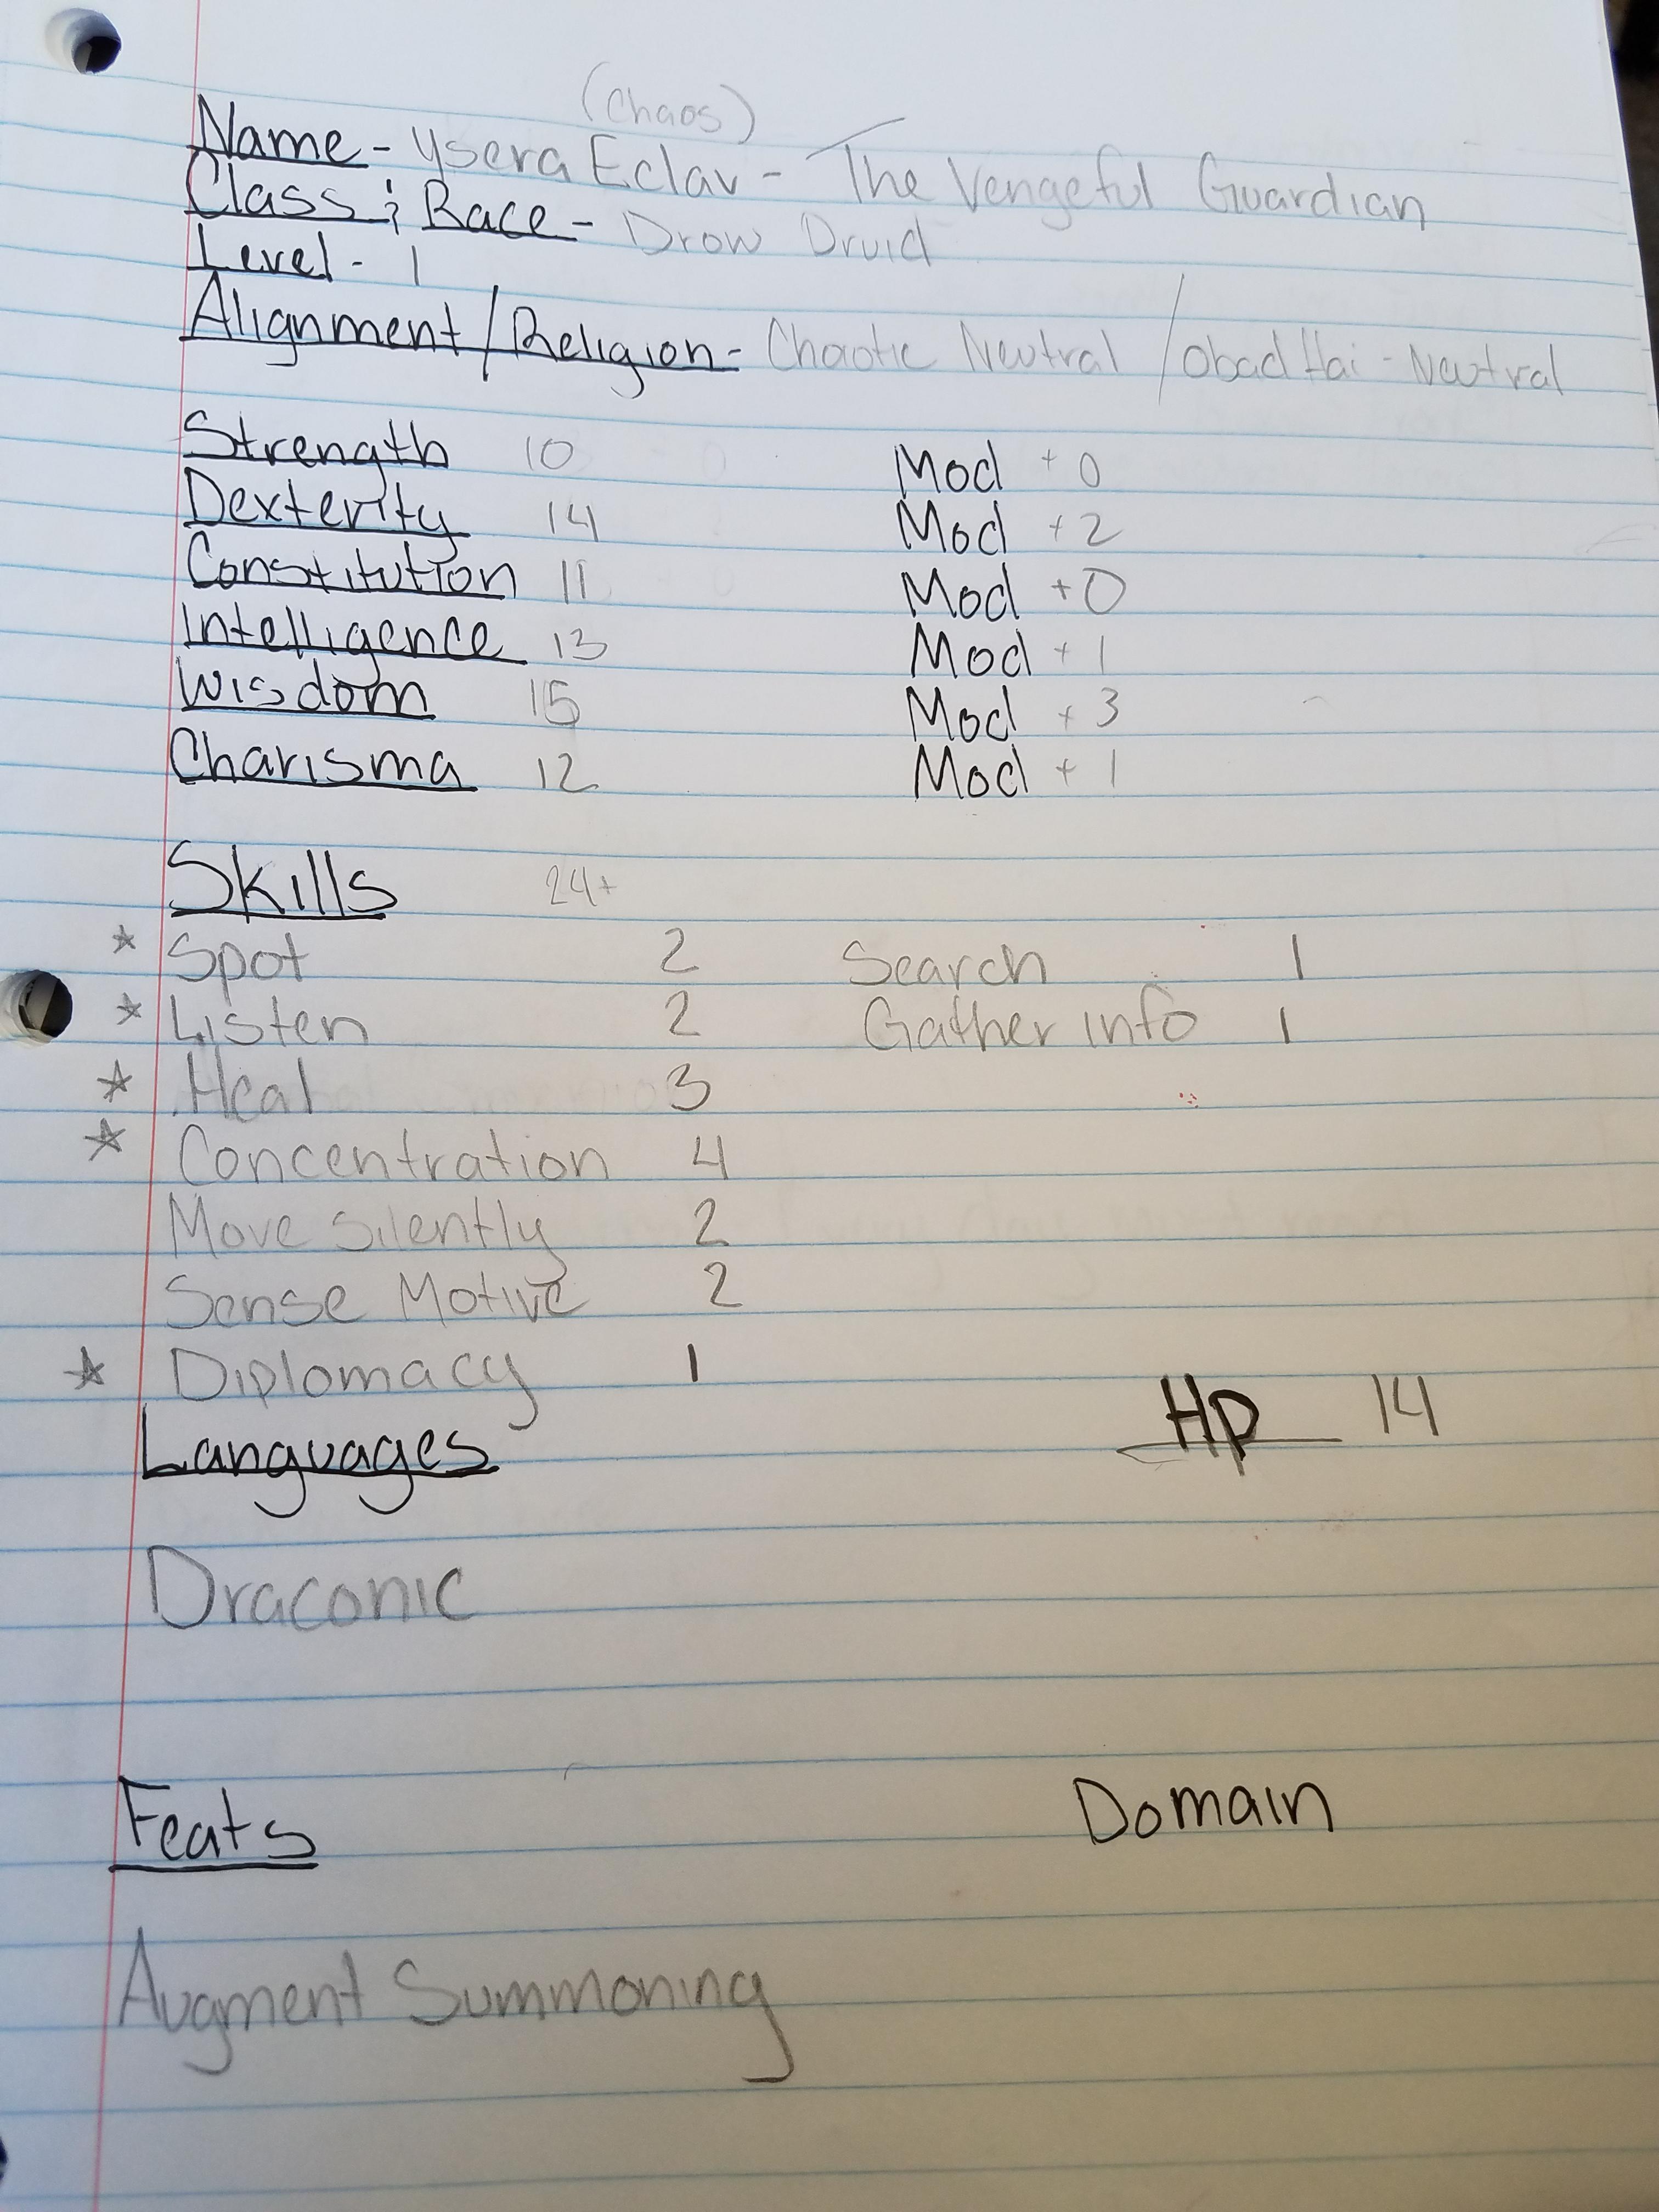 (Chaos)
Name - Ysera Eclav - The Vengeful Guardian
Class & Race - Drow Druid
Level - 1
Alignment/Religion - Chaotic Neutral / Obad Hai - Neutral
Strength 10 Mod +0
Dexterity 14 Mod +2
Constitution 11 Mod +0
Intelligence 13 Mod +1
Wisdom 15 Mod +3
Charisma 12 Mod +1
Skills 24+
* Spot 2 Search 1
* Listen 2 Gather info 1
* Heal 3
* Concentration 4
Move Silently 2
Sense Motive 2
* Diplomacy 1
Languages Hp 14
Draconic
Feats Domain
Augment Summoning